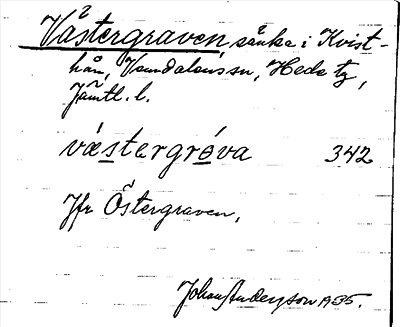 Västergraven, sänka i Kvist-
hån, Vemdalens sn, Hede tg,
Jämtl. l.
västergrǿva 342
Jfr Östergraven.
Johan Anderson 1935.